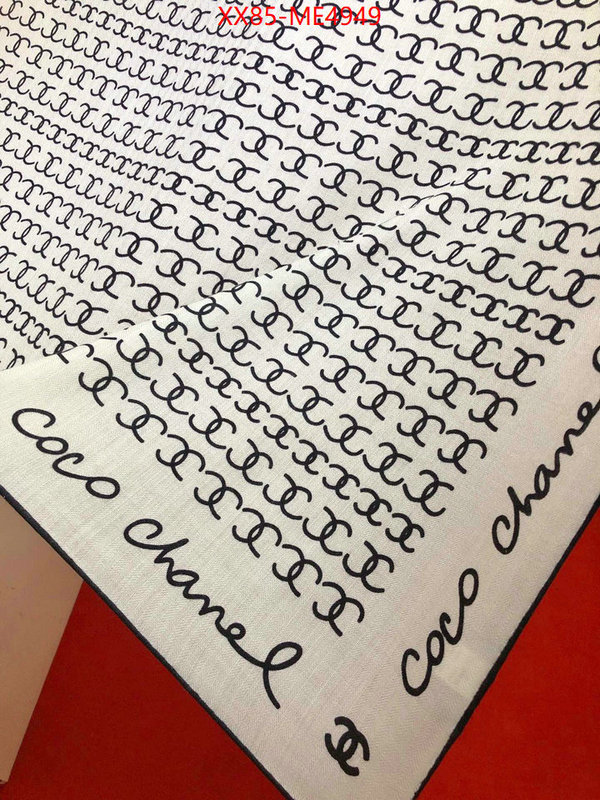 XX85-ME4949
coco chanel
coco chanel